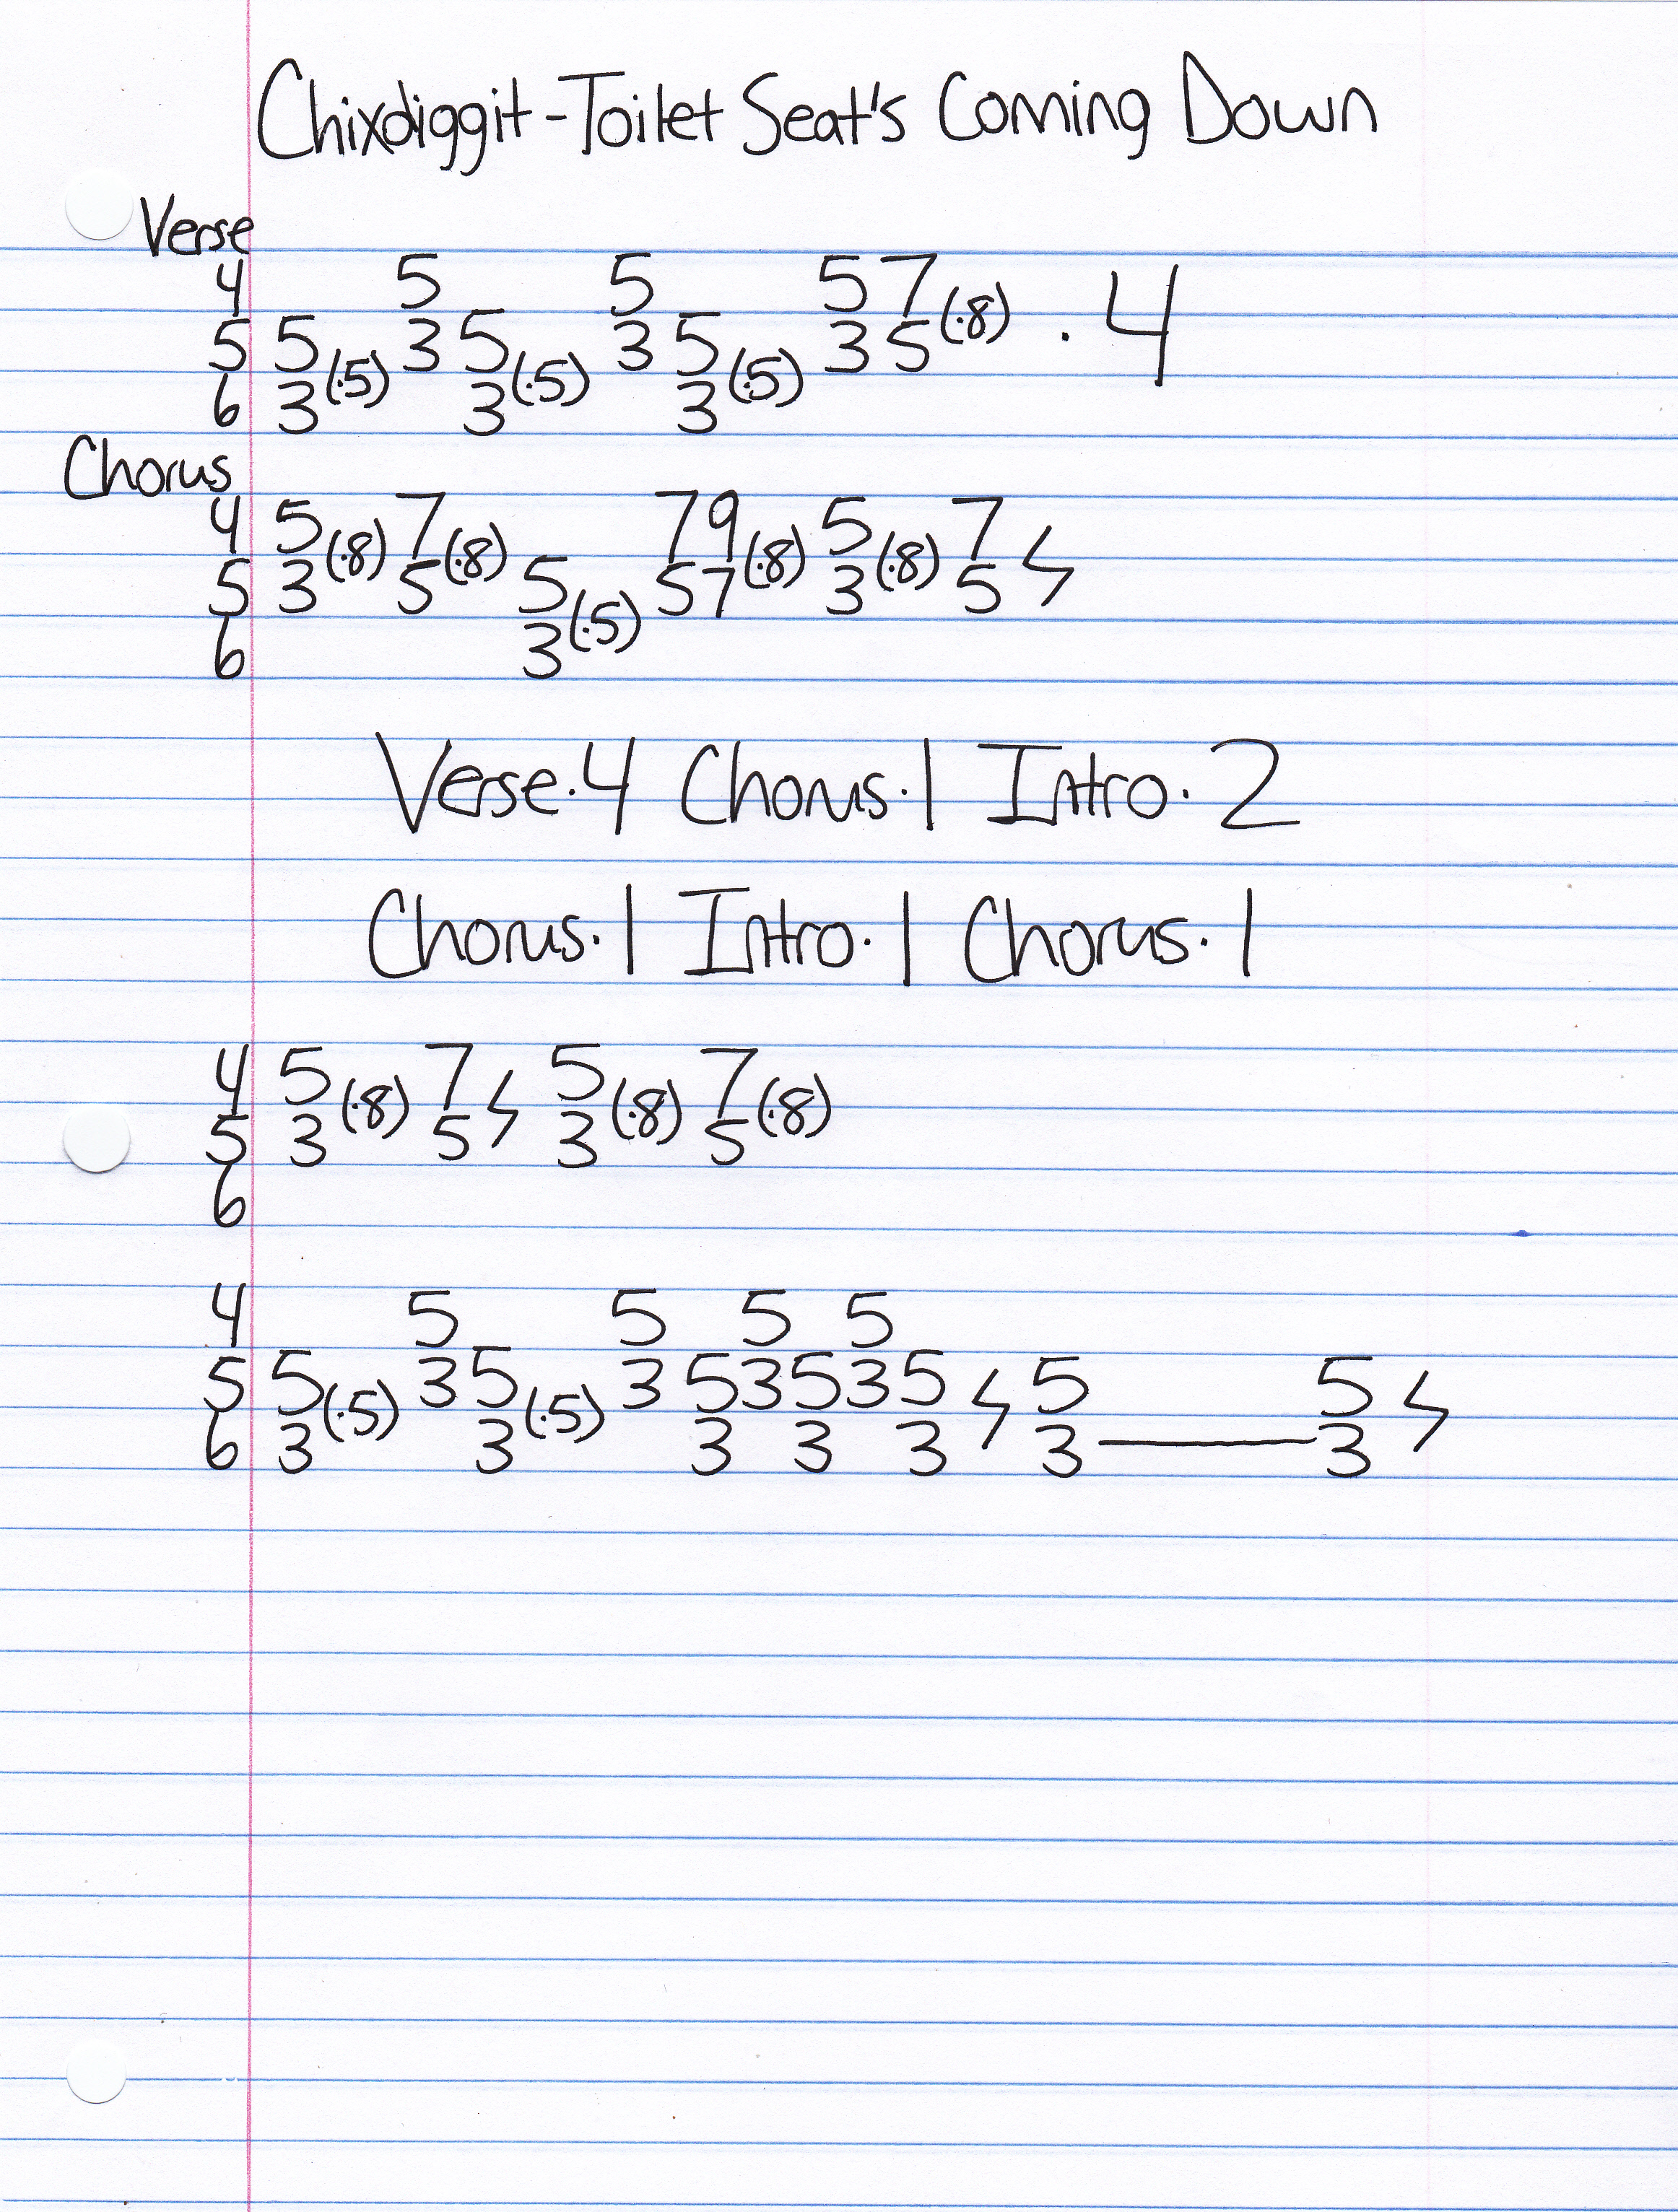 Chixdiggit-Toilet Seat's Coming Down
Verse
4 5 5 5 7
5 5 (.5) 3 5 (.5) 3 5 (.5) 3 5 (.8) . 4
6 3 3 3
Chorus
4 5 (.8) 7 (.8) 7 9 (.8) 5 (.8) 7
5 3 5 5 (.5) 5 7 3 5
6 3
Verse.4 Chorus.1 Intro.2
Chorus.1 Intro.1 Chorus.1
4 5 (.8) 7 5 (.8) 7 (.8)
5 3 5 3 5
6
4 5 5 5 5
5 5 (.5) 3 5 (.5) 3 5 3 5 3 5 5 5
6 3 3 3 3 3 3 — 3